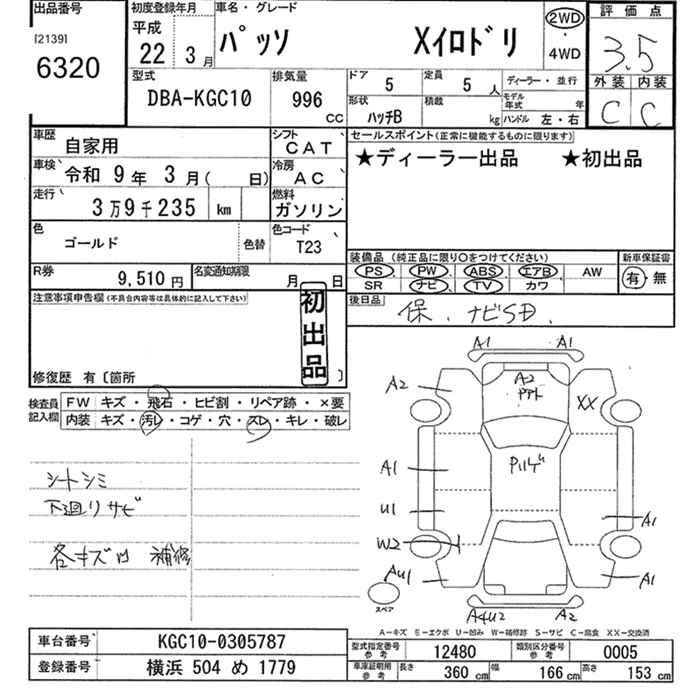 出品番号
[2139]
6320
初度登録年月
平成
22 3月
車名・グレード
パッソ Xイロドリ
2WD
・
4WD
評価点
3.5
外装 内装
C C
型式
DBA-KGC10
排気量
996
CC
ドア
5
定員
5人
ディーラー・並行
形状
ハッチB
積載
kg
モデル年式
年
ハンドル 左・右
車歴
自家用
シフト
CAT
車検
令和 9年 3月( 日)
冷房
AC
走行
3万9千235 km
燃料
ガソリン
色
ゴールド
色替
色コード
T23
セールスポイント(正常に機能するものに限ります)
★ディーラー出品 ★初出品
装備品(純正品に限り○をつけてください)
PS PW ABS エアB AW
SR ナビ TV カワ
新車保証書
有・無
R券
9,510円
名変通知期限
月 日
後日品
保、ナビSD、
注意事項申告欄(不具合内容等は具体的に記入して下さい)
初出品
修復歴 有〔箇所 〕
検査員記入欄
FW キズ・飛石・ヒビ割・リペア跡・×要
内装 キズ・汚レ・コゲ・穴・スレ・キレ・破レ
シートシミ
下廻りサビ
各キズ凹 補修
A1 A1
A2 A2 XX
A1
U1
W2 A1
AU1 A1
A4U2 A2
スペア
A―キズ E―エクボ U―凹み W―補修跡 S―サビ C―腐食 XX―交換済
車台番号 KGC10-0305787
登録番号 横浜 504 め 1779
型式指定番号 参考 12480
類別区分番号 参考 0005
車庫証明用 参考 長さ 360cm 幅 166cm 高さ 153cm